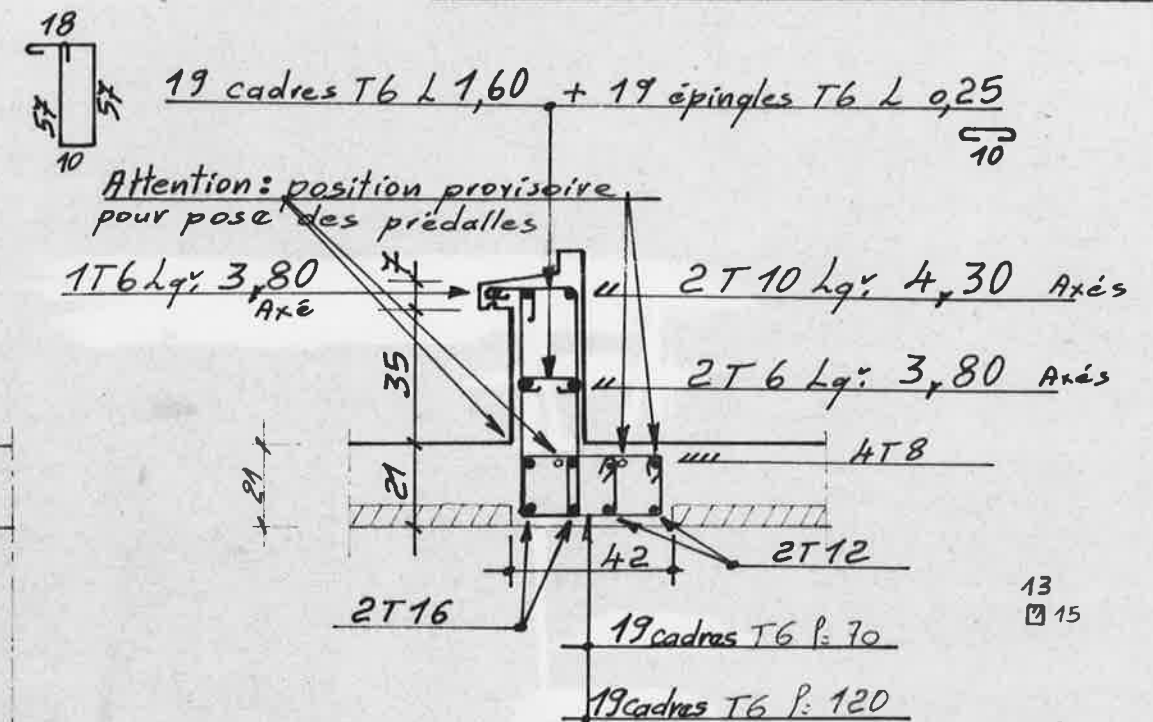 18
19 cadres T6 L 1,60 + 19 épingles T6 L 0,25
57
57
10
10
Attention: position provisoire
pour pose des prédalles
7
1T6 Lgr. 3,80
Axé
2T10 Lgr. 4,30 Axés
35
2T6 Lgr. 3,80 Axés
4T8
21
21
42
2T12
2T16
13
15
19 cadres T6 l: 70
19 cadres T6 l: 120